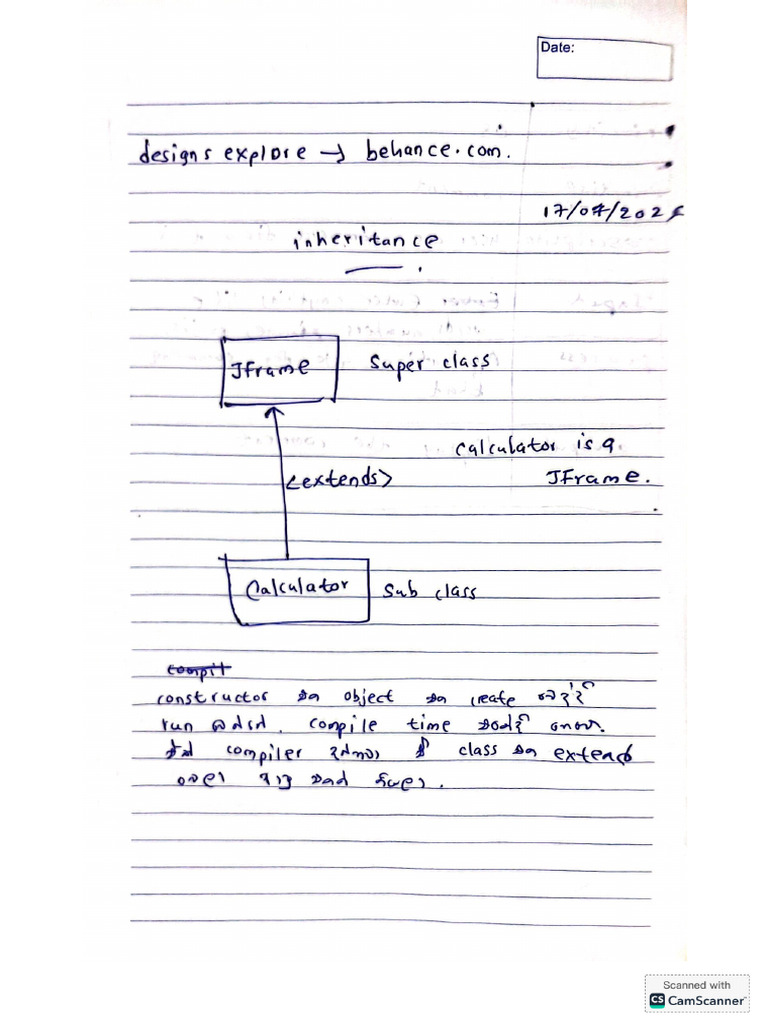 Date:
designs explore → behance.com.
17/04/202
inheritance
JFrame
Super class
calculator is a
<extends>
JFrame.
Calculator
Sub class
compil
constructor එක object එක create වෙද්දි
run වෙන්නේ. compile time එකේදී නෙවෙ.
compiler class එක extend
කරලා
Scanned with
CS CamScanner